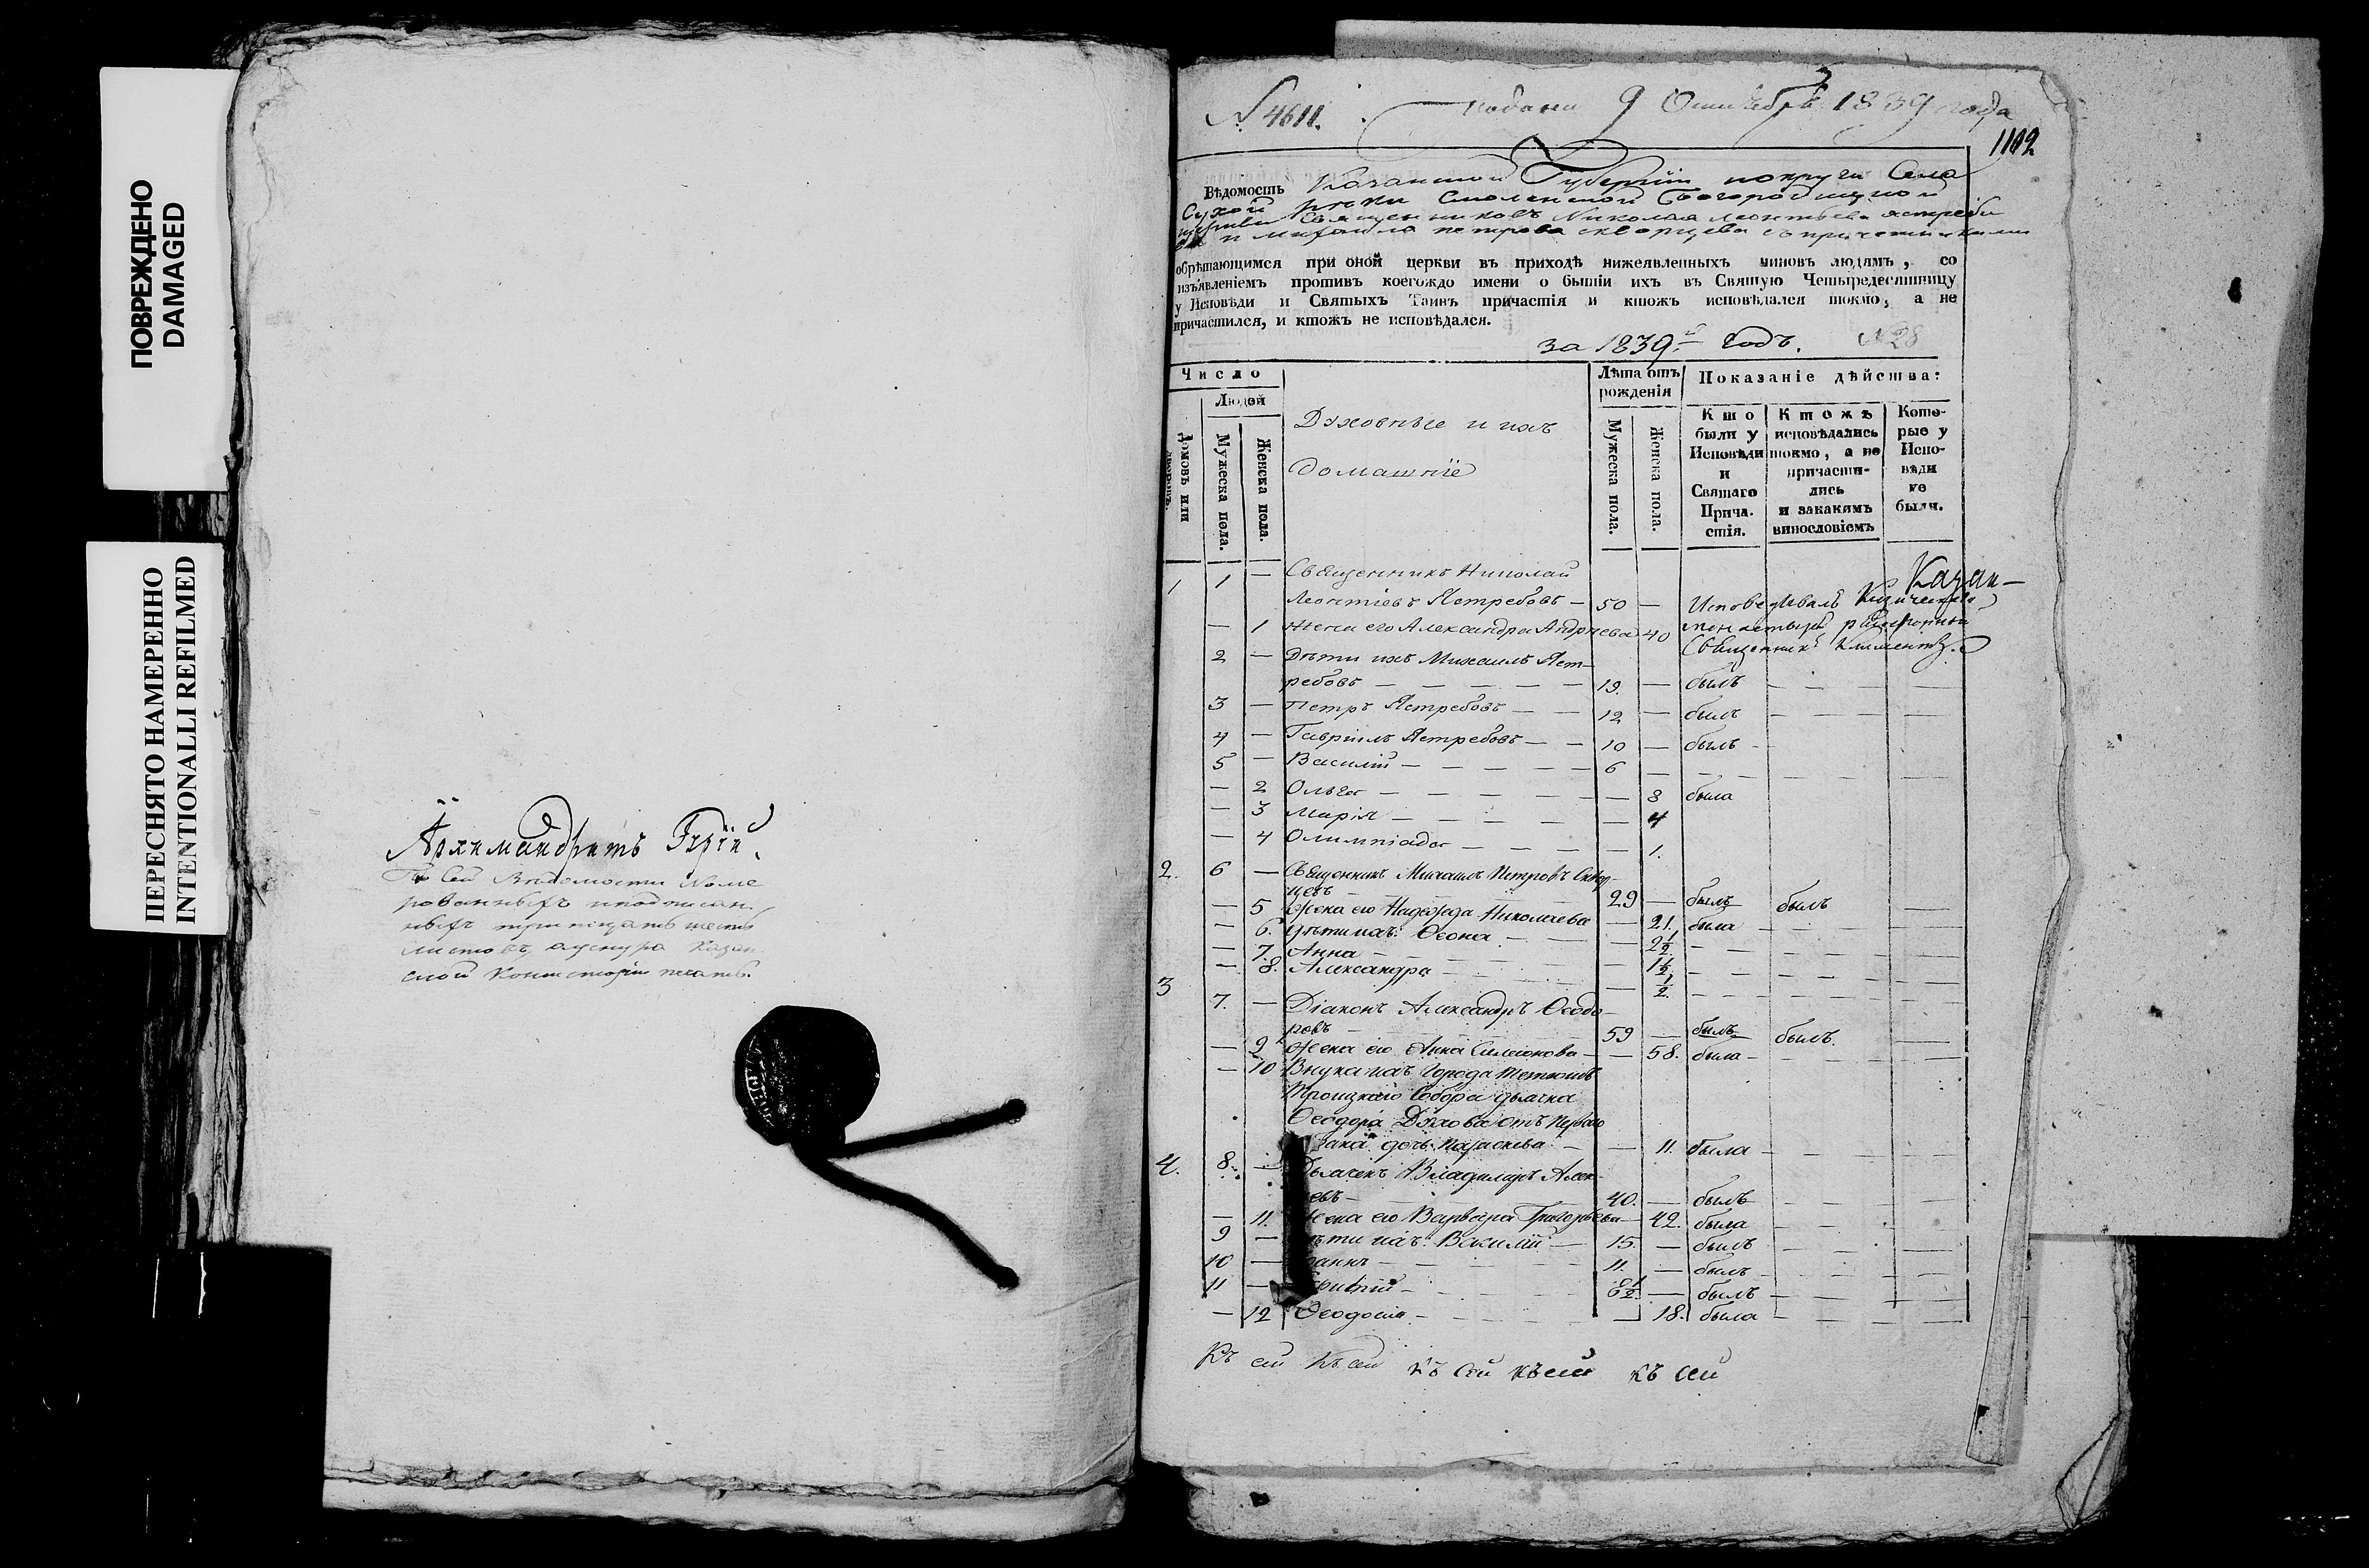 ПОВРЕЖДЕНО
DAMAGED
ПЕРЕСНЯТО НАМЕРЕННО
INTENTIONALLI REFILMED
Архимандритъ Гурій
По сей Ведомости номе
рованныхъ и подписан
ныхъ тритцать шесть
листовъ, а у снура Казан
ской Консисторіи печать.
N 4611. подана 9 Октября 1839 года
1102
Вѣдомость Казанской Губерніи и округи Села
Сухой рѣки Смоленской Богородицкой
церкви Священниковъ Николая Леонтьева Ястребо
ва и Михаила петрова скворцева съ причетниками
обрѣтающимся при оной церкви въ приходѣ нижеявленныхъ чиновъ людямъ, со
изъявленіемъ противъ коегождо имени о бытіи ихъ въ Святую Четыредесятницу
у Исповѣди и Святыхъ Таинъ причастія и ктожъ исповѣдался токмо, а не
причастился, и ктожъ не исповѣдался.
за 1839й Годъ. N 28
Число
Людей
Домовъ или
дворовъ.
Мужеска пола.
Женска пола.
Духовные и ихъ
домашніе
Лѣта отъ
рожденія
Мужеска пола.
Женска пола.
Показаніе дѣйства:
Кто
были у
Исповѣди
и
Святаго
Прича-
стія.
Ктожъ
исповѣдались
токмо, а не
причасти-
лись
и закакимъ
винословіемъ
Кото-
рые у
Испо-
вѣди
не
были.
1 1 — Священникъ Николай Казан-
Леонтіевъ Ястребовъ — 50 — Исповедывалъ Кизическаго
— 1 Жена его Александра Андреева 40 монастыря
2 — Дѣти ихъ Михаилъ Яст- Священникъ Климентъ.
ребовъ — 19. — былъ
3 — Петръ Ястребовъ — 12 — былъ
4 — Гавріилъ Ястребовъ — 10 — былъ
5 — Василій — 6 —
— 2 Ольга — 8 была
— 3 Марія — 4
— 4 Олимпіада — 1.
2. 6 — Священникъ Михаилъ Петровъ Сквор-
цевъ 29 — былъ былъ —
— 5 Жена его Надежда Николаева — 21. была —
— 6. Дѣти ихъ: Ѳеона — 2 1/2 —
— 7. Анна — 1 1/2 —
— 8. Александра — 1/2. —
3 7. — Діаконъ Александръ Ѳеодо-
ровъ — 59 — былъ былъ. —
— 9 Жена его Анна Симеонова — 58. была —
— 10 Внука ихъ города Тетюшъ
Троицкаго Собора дьячка
Ѳеодора Духова отъ перваго
брака дочь Параскева — 11. была —
4. 8. — Дьячекъ Владимиръ Алек
евъ — 40. — былъ —
— 11. Жена его Варвара Григорьева — 42. была —
9 — Дѣти ихъ: Василій — 15. — былъ —
10 — Іоаннъ — 11. — былъ —
11 — — 8 1/2. — былъ —
— 12 Ѳеодосія — 18. была —
Къ сей Къ сей къ сей къ сей къ сей